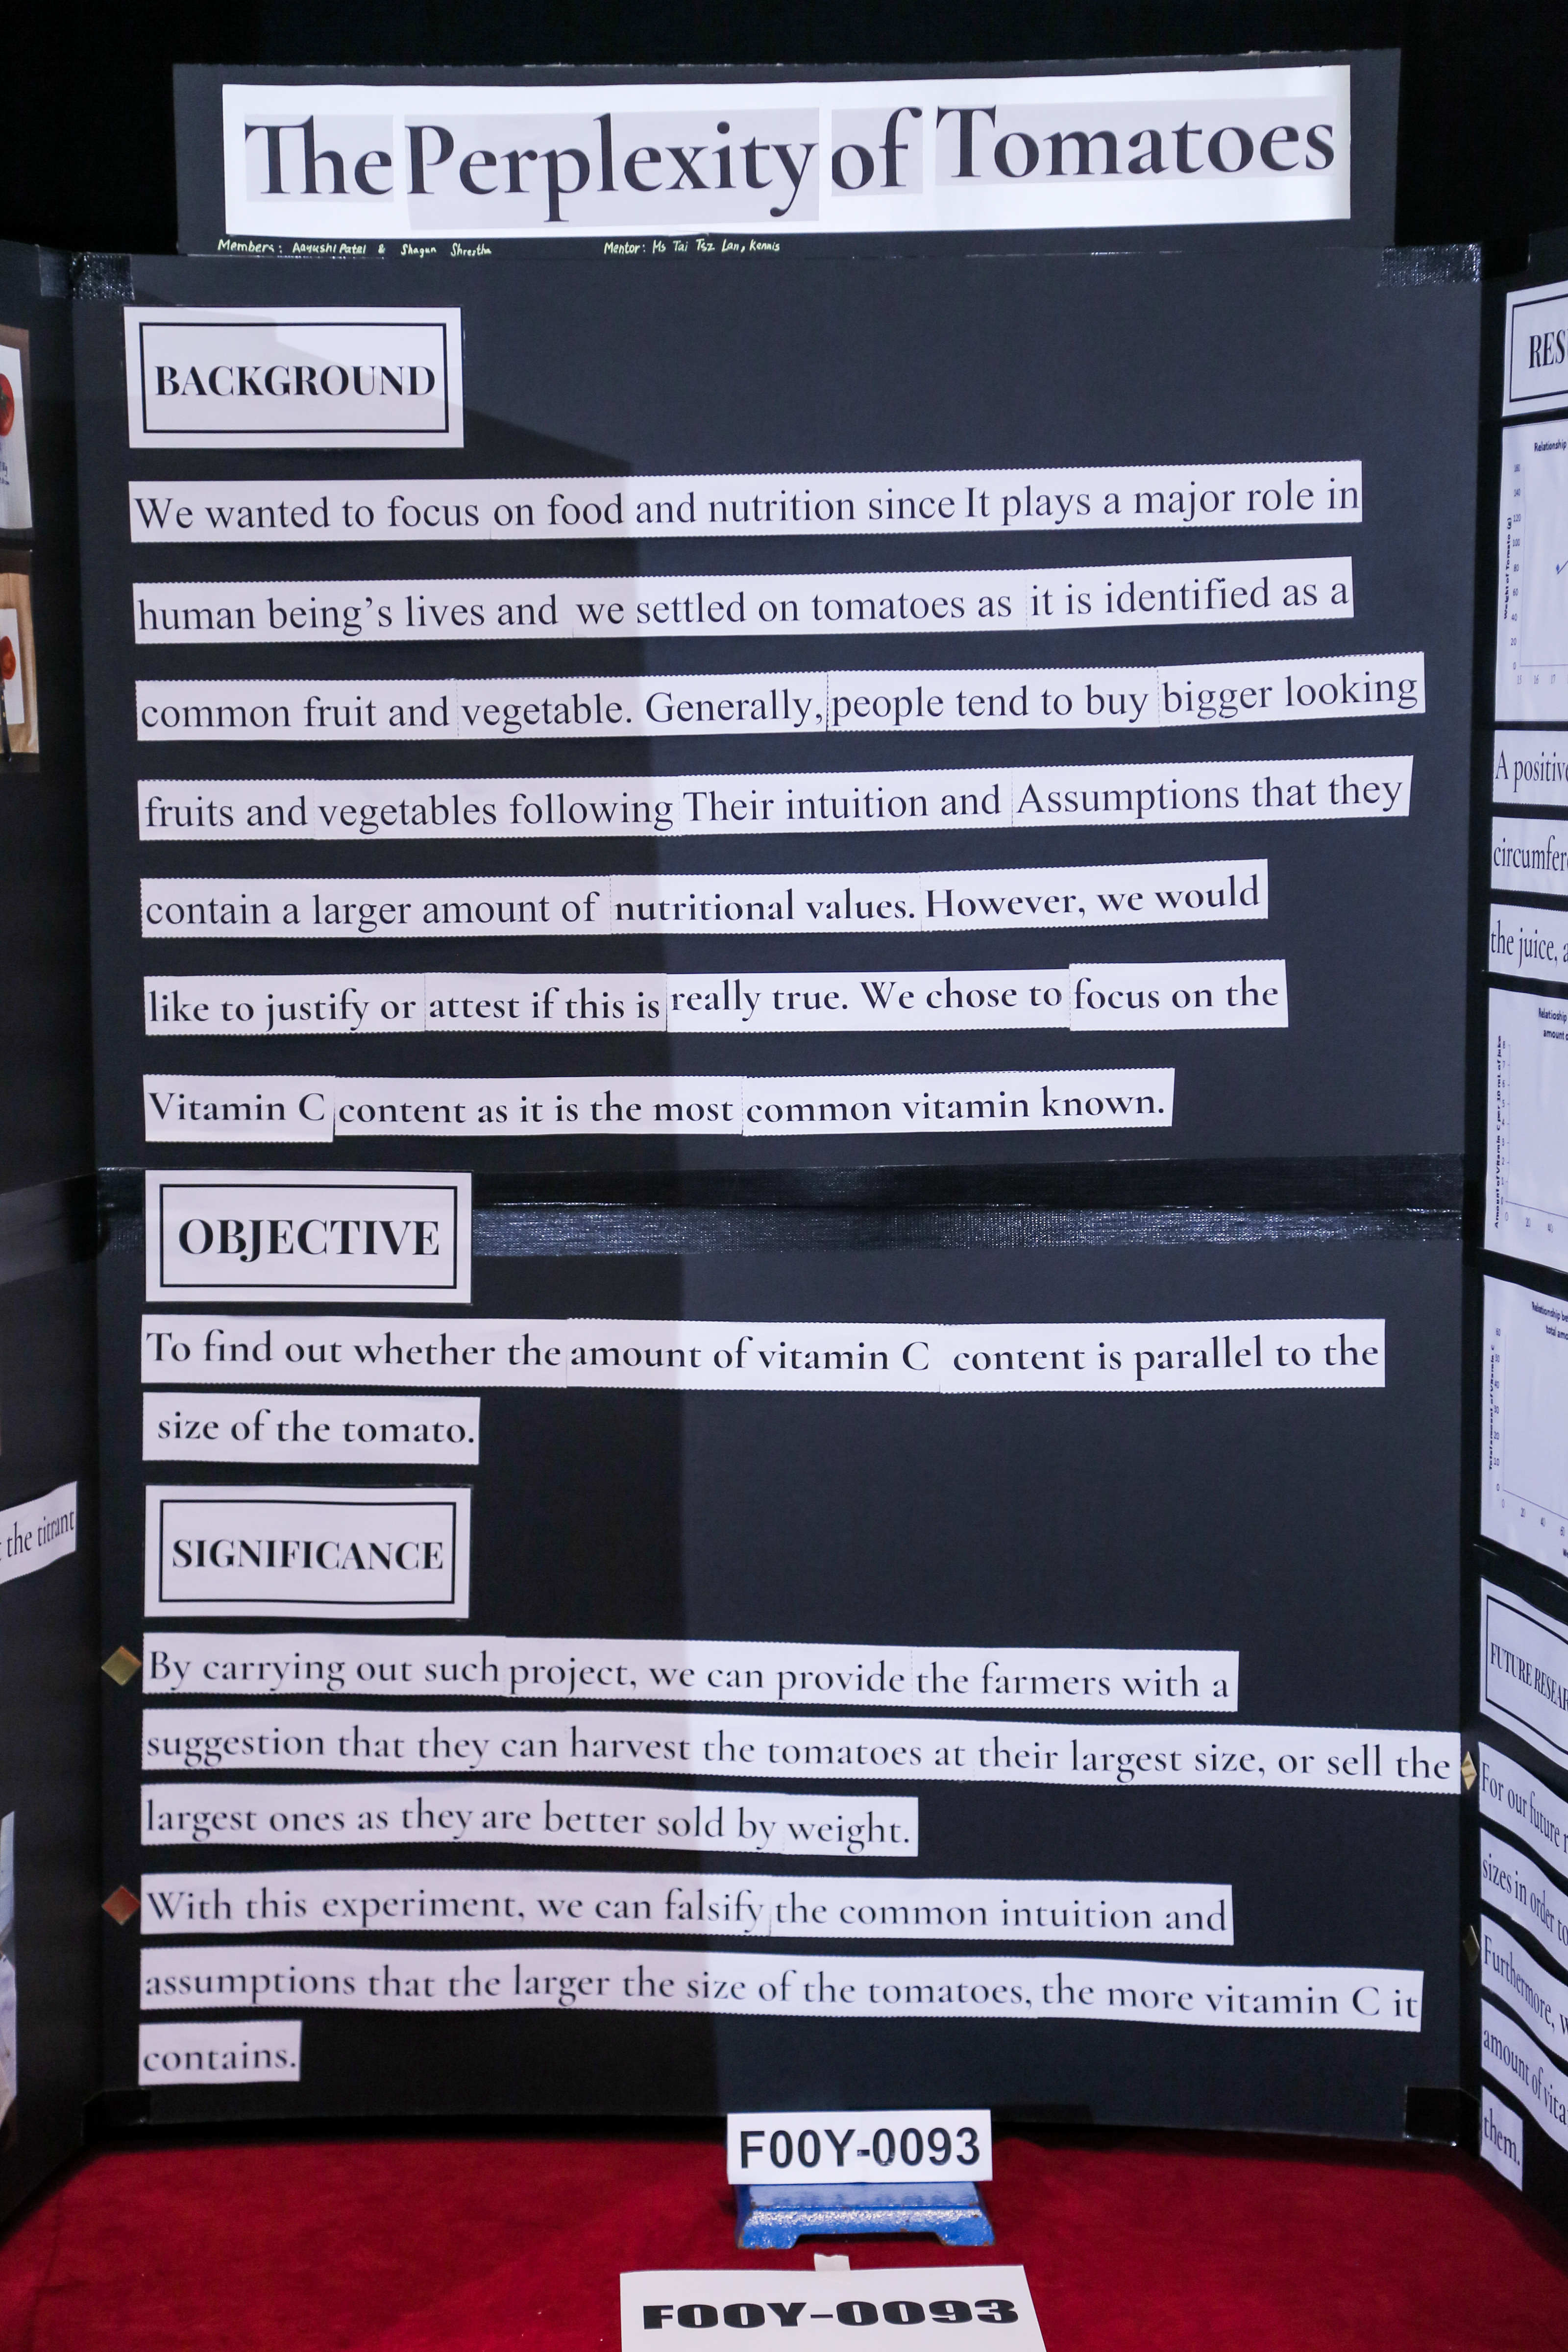 The Perplexity of Tomatoes
Members: Aayushi Patel & Shagun Shrestha Mentor: Ms Tai Tsz Lan, Kennis
BACKGROUND
We wanted to focus on food and nutrition since It plays a major role in
human being's lives and we settled on tomatoes as it is identified as a
common fruit and vegetable. Generally, people tend to buy bigger looking
fruits and vegetables following Their intuition and Assumptions that they
contain a larger amount of nutritional values. However, we would
like to justify or attest if this is really true. We chose to focus on the
Vitamin C content as it is the most common vitamin known.
OBJECTIVE
To find out whether the amount of vitamin C content is parallel to the
size of the tomato.
SIGNIFICANCE
By carrying out such project, we can provide the farmers with a
suggestion that they can harvest the tomatoes at their largest size, or sell the
largest ones as they are better sold by weight.
With this experiment, we can falsify the common intuition and
assumptions that the larger the size of the tomatoes, the more vitamin C it
contains.
F00Y-0093
F00Y-0093
the titrant
RES
Relationship
Weight of Tomato (g)
A positive
circumfer
the juice, a
amount o
Amount of Vitamin C per 10 mL of juice
Relationship be
total amo
Total amount of Vitamin C
FUTURE RESEAR
For our future r
sizes in order to
Furthermore, w
amount of vita
them.